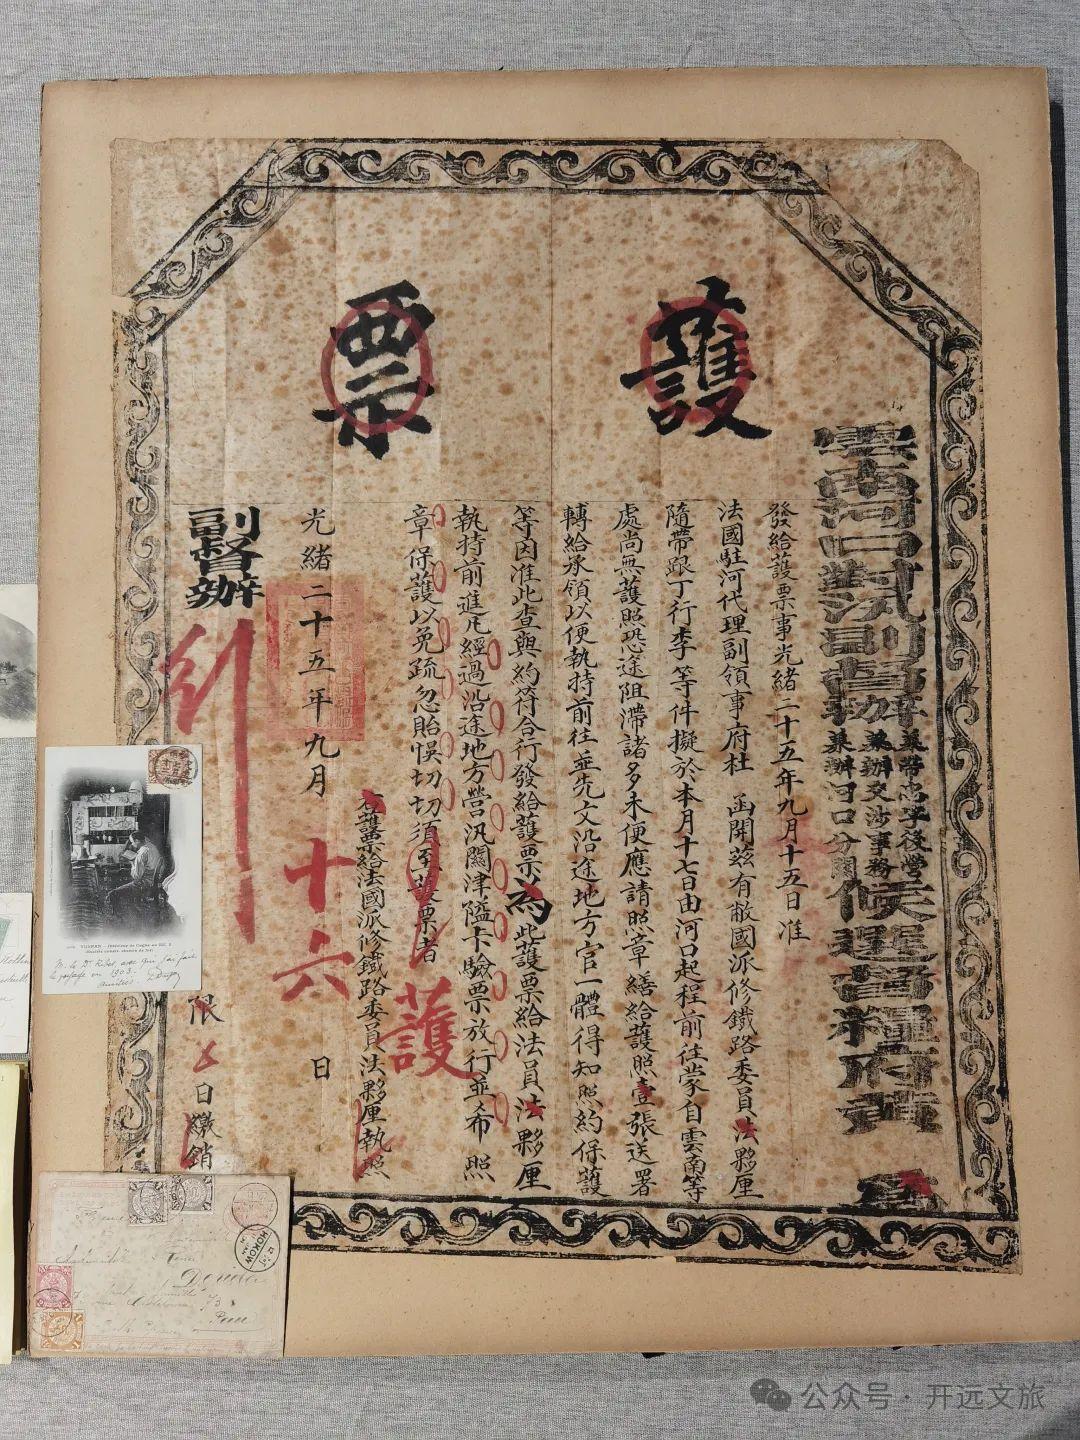 護票
雲南河口對汛副督辦兼帶忠字後營兼辦交涉事務兼辦河口分關候選督糧府黃 為
發給護票事光緒二十五年九月十五日准
法國駐河代理副領事府杜 函開茲有敝國派修鐵路委員法夥厘
隨帶跟丁行李等件擬於本月十七日由河口起程前往蒙自雲南等
處尚無護照恐途阻滯諸多未便應請照章繕給護照壹張送署
轉給承領以便執持前往並先文沿途地方官一體得知照約保護
等因准此查與約符合行發給護票為此護票給法員法夥厘
執持前進凡經過沿途地方營汛關津隘卡驗票放行並希照
章保護以免疏忽貽悞切切須至護票者
右護票給法國派修鐵路委員法夥厘執照
護
光緒二十五年九月十六日
副督辦
限 日繳銷
YUNNAN
1903
HOKOW
公众号 · 开远文旅